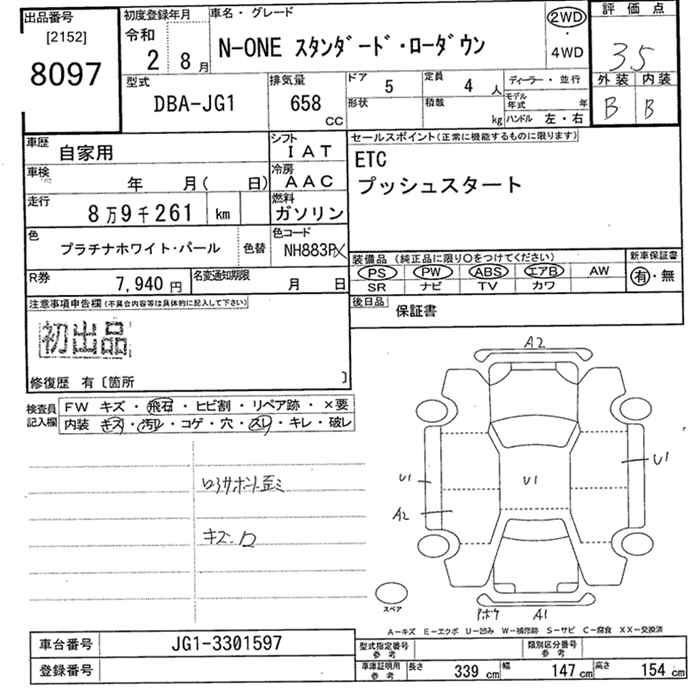 出品番号
[2152]
8097
初度登録年月
令和
2 8月
車名・グレード
N-ONE スタンダード・ローダウン
2WD
・
4WD
評価点
3.5
外装 内装
B B
型式
DBA-JG1
排気量
658
CC
ドア 5
形状
定員 4 人
積載 kg
ディーラー・並行
モデル年式 年
ハンドル 左・右
車歴 自家用
シフト IAT
車検 年 月( 日)
冷房 AAC
走行 8万9千261 km
燃料 ガソリン
色 プラチナホワイト・パール 色替
色コード NH883P
R券 7,940 円
名変通知期限 月 日
セールスポイント(正常に機能するものに限ります)
ETC
プッシュスタート
装備品 (純正品に限り○をつけてください)
PS PW ABS エアB AW
SR ナビ TV カワ
新車保証書
有・無
後日品
保証書
注意事項申告欄(不具合内容等は具体的に記入して下さい)
初出品
修復歴 有〔箇所 〕
検査員
記入欄
FW キズ・飛石・ヒビ割・リペア跡・×要
内装 キズ・汚れ・コゲ・穴・スレ・キレ・破レ
キズ.
A2
U1
A2
U1
U1
A1
スペア
A-キズ E-エクボ U-凹み W-補修跡 S-サビ C-腐食 XX-交換済
車台番号 JG1-3301597
登録番号
型式指定番号
参考
類別区分番号
参考
車庫証明用
参考
長さ 339 cm 幅 147 cm 高さ 154 cm